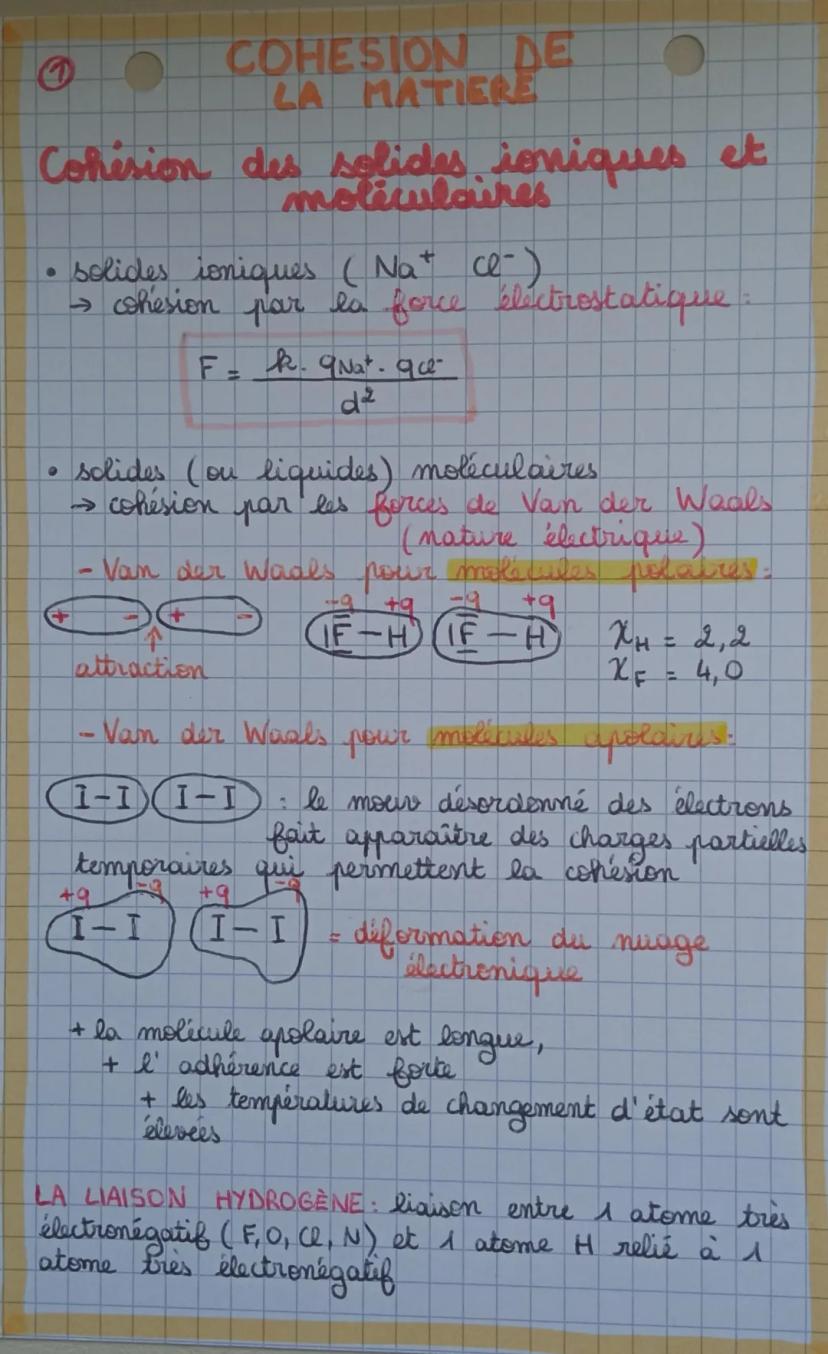 ①
COHESION DE
LA MATIERE
Cohésion des solides ioniques et
moléculaires
• solides ioniques ( Na⁺ Cl⁻ )
→ cohésion par la force électrostatique :
F = k. qNa⁺. qCl⁻ / d²
• solides (ou liquides) moléculaires
→ cohésion par les forces de Van der Waals
(nature électrique)
- Van der Waals pour molécules polaires :
-q +q -q +q
+ - + - |F̲̅ – H |F̲̅ – H χH = 2,2
attraction χF = 4,0
- Van der Waals pour molécules apolaires :
I-I I-I : le mouv désordonné des électrons
fait apparaître des charges partielles
temporaires qui permettent la cohésion
+q -q +q -q
I-I I-I = déformation du nuage
électronique
+ la molécule apolaire est longue,
+ l'adhérence est forte
+ les températures de changement d'état sont
élevées
LA LIAISON HYDROGÈNE : liaison entre 1 atome très
électronégatif (F, O, Cl, N) et 1 atome H relié à 1
atome très électronégatif